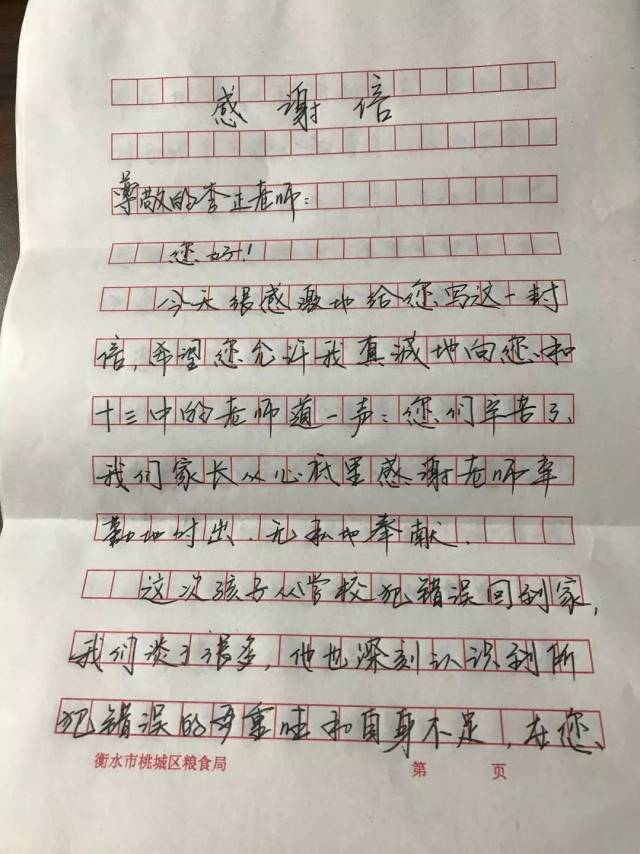 感谢信
尊敬的李正老师：
您好！
今天很感激地给您写这一封
信，希望您允许我真诚地向您和
十三中的老师道一声：您们辛苦了、
我们家长从心底里感谢老师辛
勤地付出．无私地奉献．
这次孩子从学校犯错误回到家，
我们谈了很多，他也深刻认识到所
犯错误的严重性和自身不足，在您、
衡水市桃城区粮食局 第 页